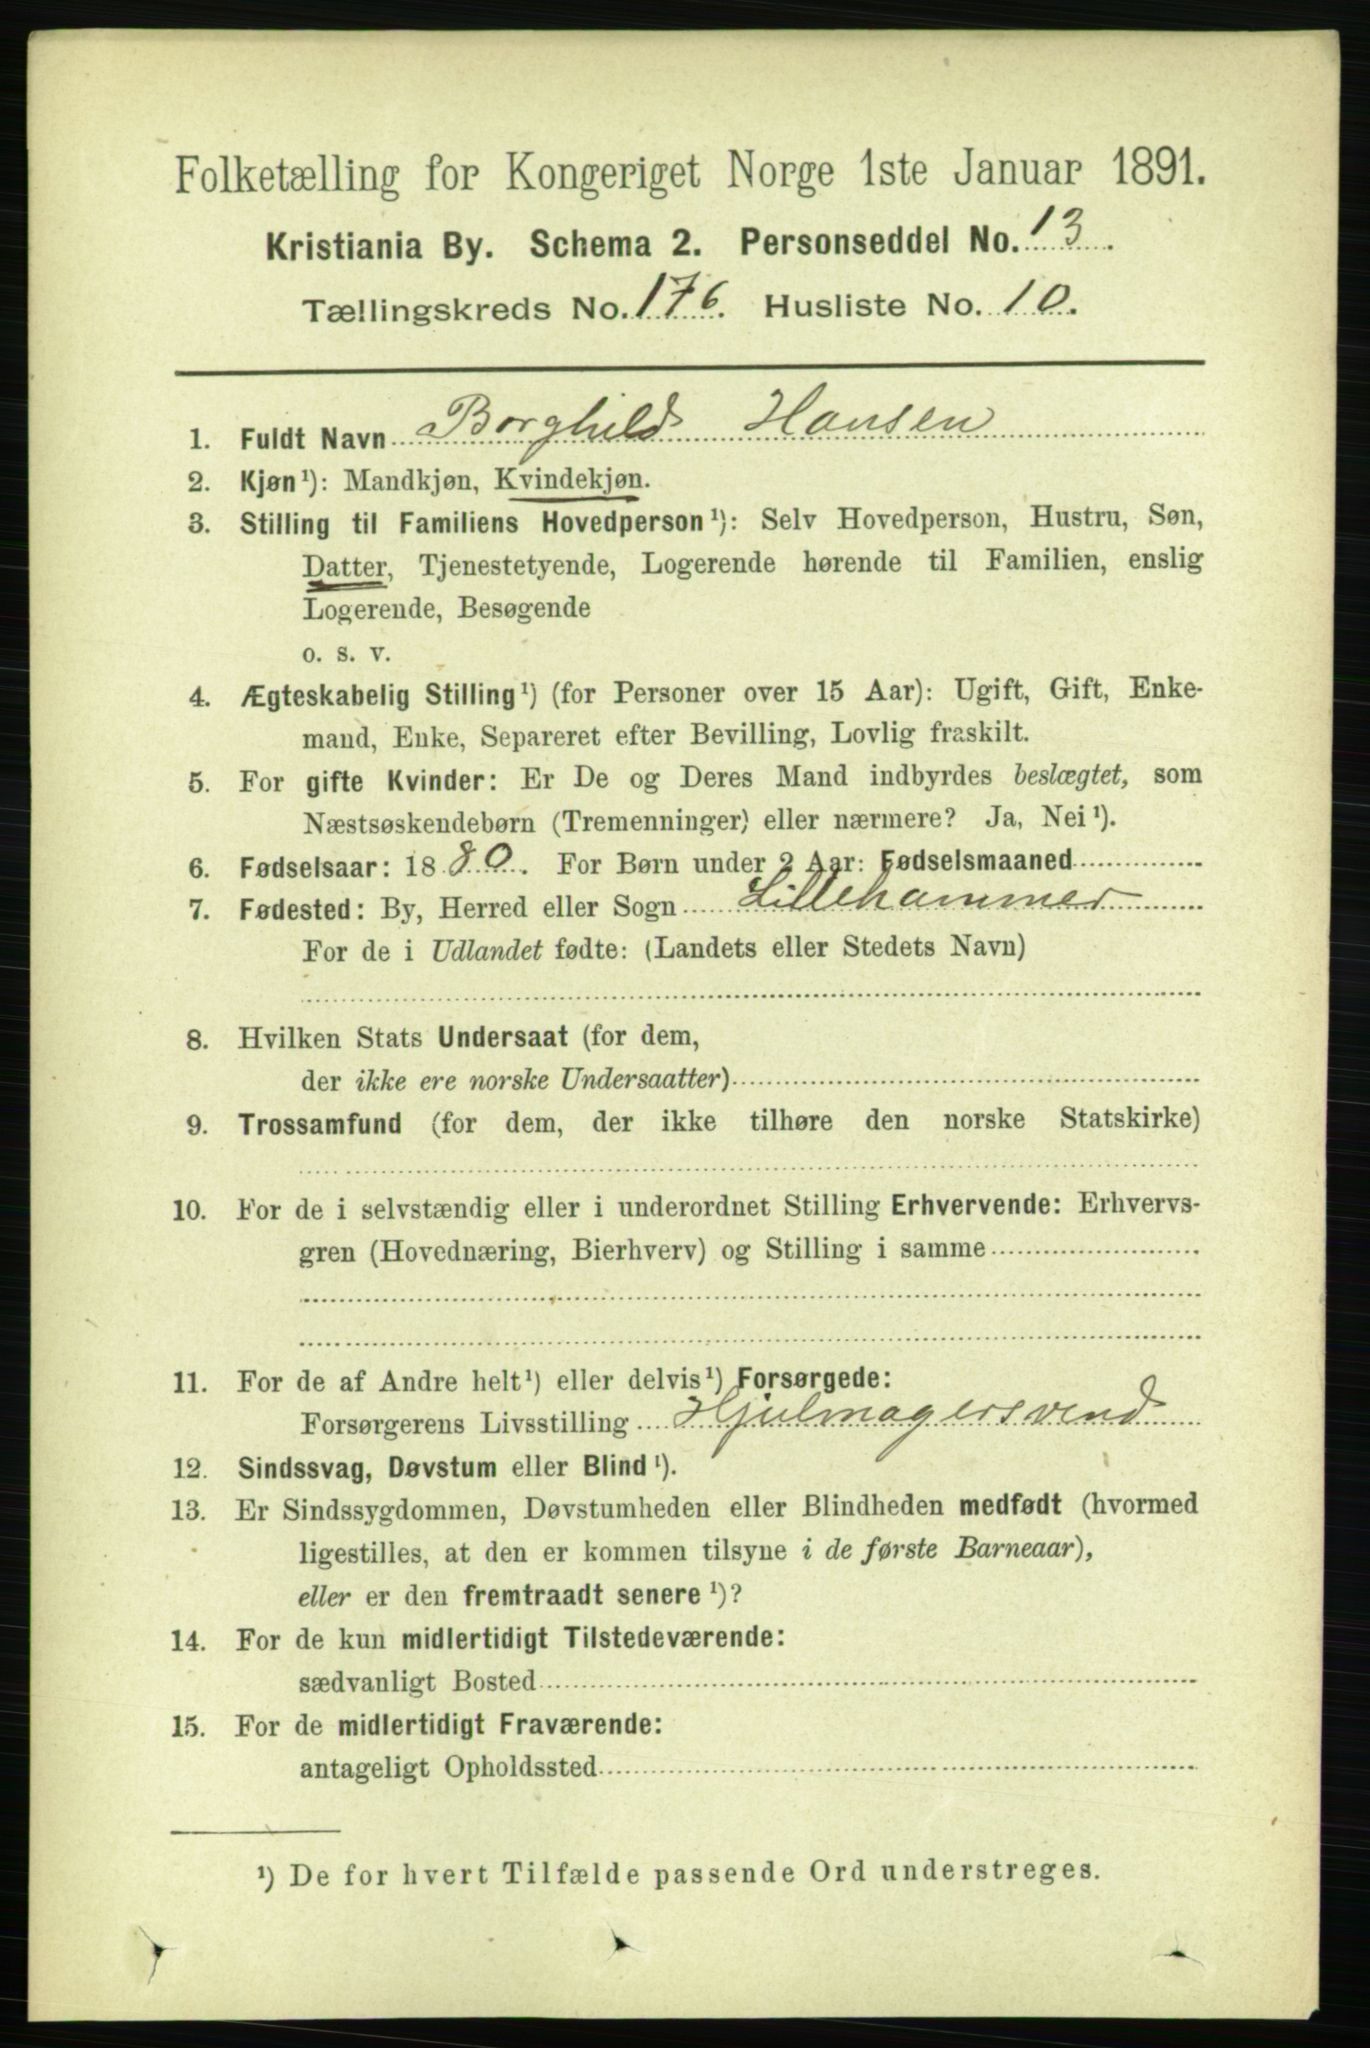 Folketælling for Kongeriget Norge 1ste Januar 1891.
Kristiania By. Schema 2. Personseddel No. 13.
Tællingskreds No. 176. Husliste No. 10.
1. Fuldt Navn Borghild Hansen
2. Kjøn¹): Mandkjøn, Kvindekjøn.
3. Stilling til Familiens Hovedperson¹): Selv Hovedperson, Hustru, Søn,
Datter, Tjenestetyende, Logerende hørende til Familien, enslig
Logerende, Besøgende
o. s. v.
4. Ægteskabelig Stilling¹) (for Personer over 15 Aar): Ugift, Gift, Enke-
mand, Enke, Separeret efter Bevilling, Lovlig fraskilt.
5. For gifte Kvinder: Er De og Deres Mand indbyrdes beslægtet, som
Næstsøskendebørn (Tremenninger) eller nærmere? Ja, Nei¹).
6. Fødselsaar: 1880. For Børn under 2 Aar: Fødselsmaaned
7. Fødested: By, Herred eller Sogn Lillehammer
For de i Udlandet fødte: (Landets eller Stedets Navn)
8. Hvilken Stats Undersaat (for dem,
der ikke ere norske Undersaatter)
9. Trossamfund (for dem, der ikke tilhøre den norske Statskirke)
10. For de i selvstændig eller i underordnet Stilling Erhvervende: Erhvervs-
gren (Hovednæring, Bierhverv) og Stilling i samme
11. For de af Andre helt¹) eller delvis¹) Forsørgede:
Forsørgerens Livsstilling Hjulmagersvend
12. Sindssvag, Døvstum eller Blind¹).
13. Er Sindssygdommen, Døvstumheden eller Blindheden medfødt (hvormed
ligestilles, at den er kommen tilsyne i de første Barneaar),
eller er den fremtraadt senere¹)?
14. For de kun midlertidigt Tilstedeværende:
sædvanligt Bosted
15. For de midlertidigt Fraværende:
antageligt Opholdssted
¹) De for hvert Tilfælde passende Ord understreges.